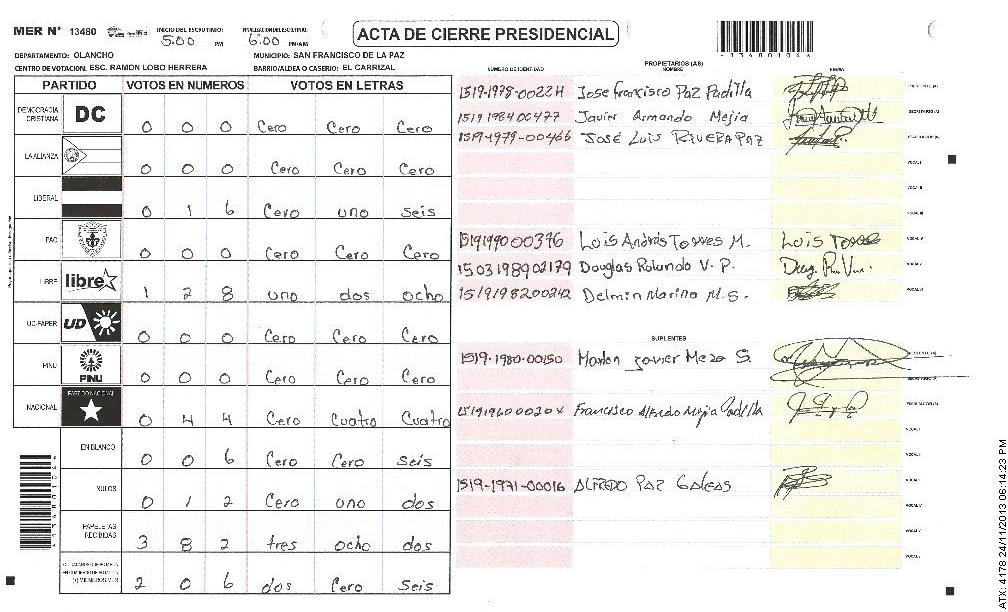 MER Nº 13480
INICIO DEL ESCRUTINIO: 5:00 PM
FINALIZACION DEL ESCRUTINIO: 6:00 PM/AM
ACTA DE CIERRE PRESIDENCIAL
-13480104
DEPARTAMENTO: OLANCHO MUNICIPIO: SAN FRANCISCO DE LA PAZ
CENTRO DE VOTACION: ESC. RAMON LOBO HERRERA BARRIO/ALDEA O CASERIO: EL CARRIZAL
PARTIDO VOTOS EN NUMEROS VOTOS EN LETRAS
DEMOCRACIA CRISTIANA DC 0 0 0 Cero Cero Cero
LA ALIANZA 0 0 0 Cero Cero Cero
LIBERAL 0 1 6 Cero uno seis
PAC 0 0 0 Cero Cero Cero
LIBRE libre 1 2 8 uno dos ocho
UD-FAPER UD 0 0 0 Cero Cero Cero
PINU PINU 0 0 0 Cero Cero Cero
NACIONAL PARTIDO NACIONAL 0 4 4 Cero Cuatro Cuatro
EN BLANCO 0 0 6 Cero Cero seis
NULOS 0 1 2 Cero uno dos
PAPELETAS RECIBIDAS 3 8 2 tres ocho dos
(+) MIEMBROS MER 2 0 6 dos Cero seis
PROPIETARIOS (AS)
NUMERO DE IDENTIDAD NOMBRE FIRMA
Jose Francisco Paz Padilla PRESIDENTE (A)
1519 1984 00477 Javier Armando Mejia SECRETARIO (A)
1519-1979-00466 JOSÉ LUIS RIVERA PAZ ESCRUTADOR (A)
VOCAL I
VOCAL II
VOCAL III
1519199000376 Luis Andrés Torres M. Luis Torres VOCAL IV
1503198902179 Douglas Rolando V. P. VOCAL V
1519198200242 Delmin Marino M.S. VOCAL VI
SUPLENTES
1519-1980-00150 Marlon Javier Meza S. PRESIDENTE (A)
SECRETARIO (A)
Francisco Alfredo Mejia Padilla ESCRUTADOR (A)
VOCAL I
VOCAL II
1519-1971-00016 ALFREDO PAZ GALEAS
ATX: 4178 24/11/2013 06:14:23 PM